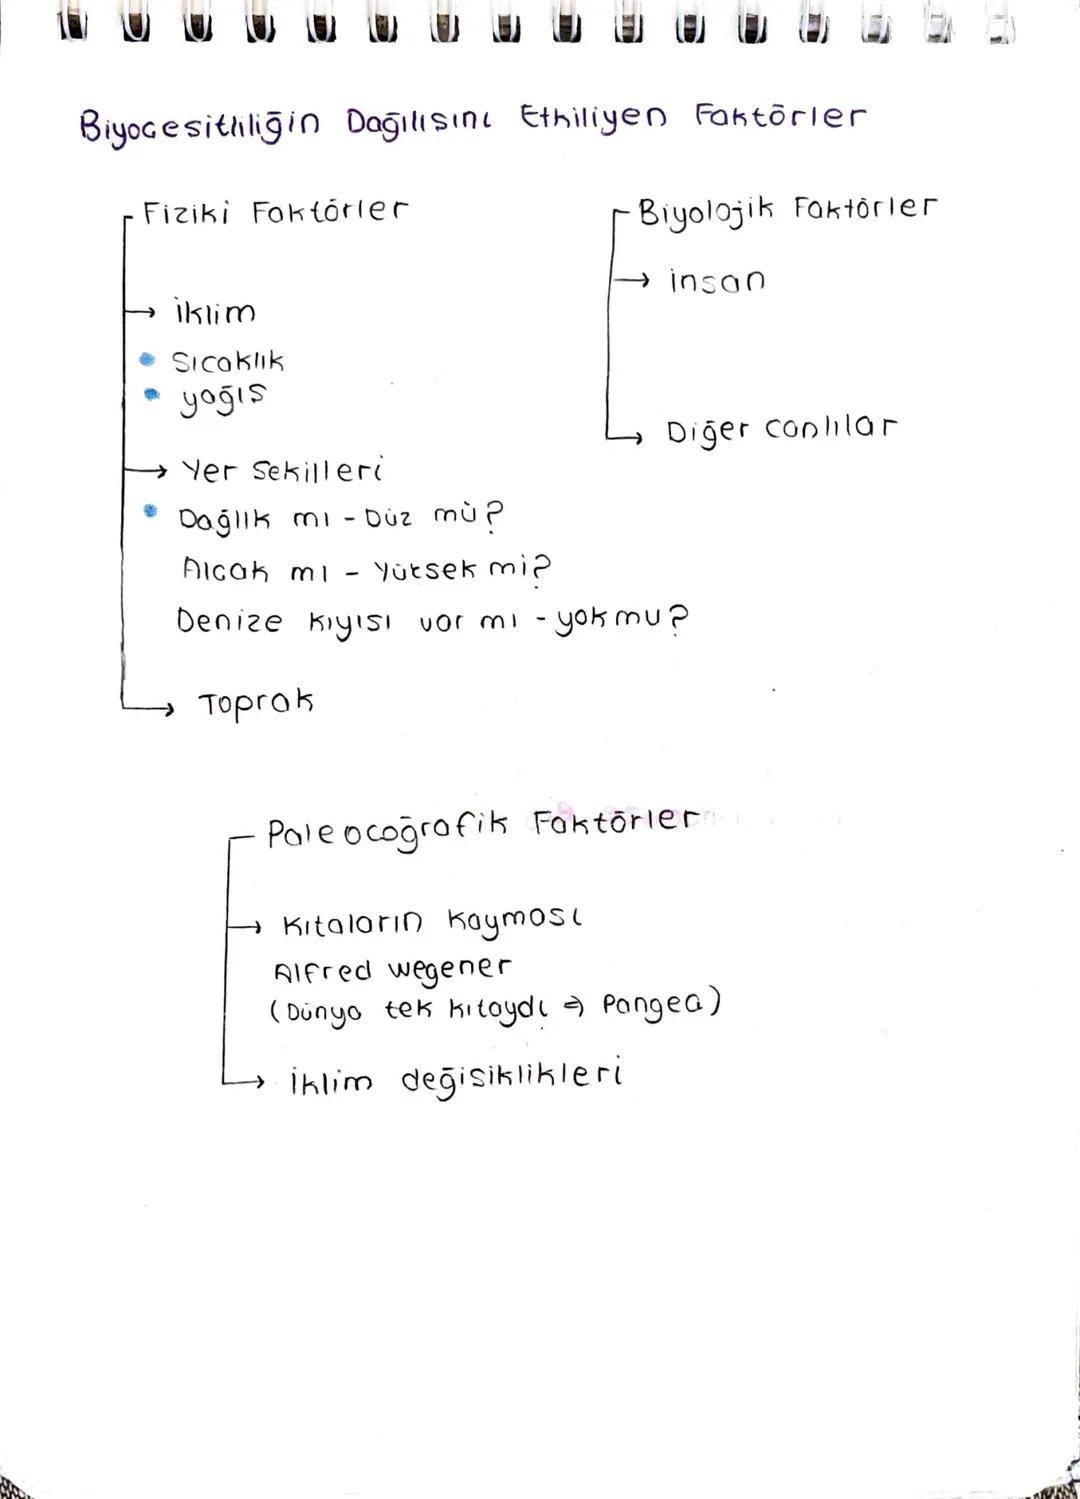 Biyocesitliliğin Dağılısını Etkiliyen Faktörler
Fiziki Faktörler
→ İklim
• Sıcaklık
• yağıs
→ Yer Sekilleri
• Dağlık mı - Düz mü?
Alcak mı - Yüksek mi?
Denize kıyısı var mı - yok mu?
→ Toprak
Biyolojik Faktörler
→ insan
→ Diğer canlılar
Paleocoğrafik Faktörler
→ Kıtaların Kayması
Alfred wegener
(Dünya tek kıtaydı ⇒ Pangea)
→ İklim değisiklikleri